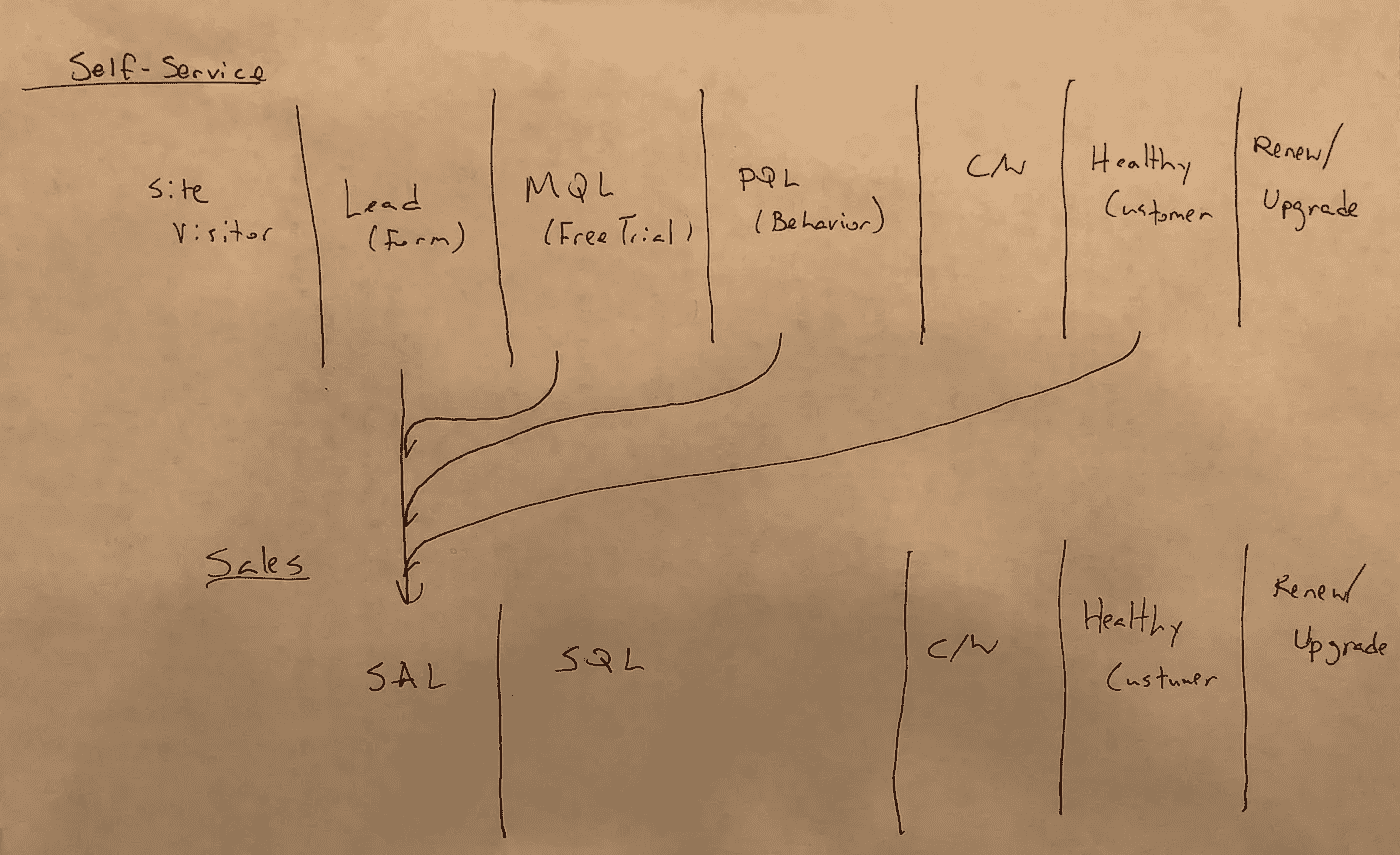 Self-Service
Site
Visitor
Lead
(Form)
MQL
(Free Trial)
PQL
(Behavior)
C/W
Healthy
Customer
Renew/
Upgrade
Sales
SAL
SQL
C/W
Healthy
Customer
Renew/
Upgrade